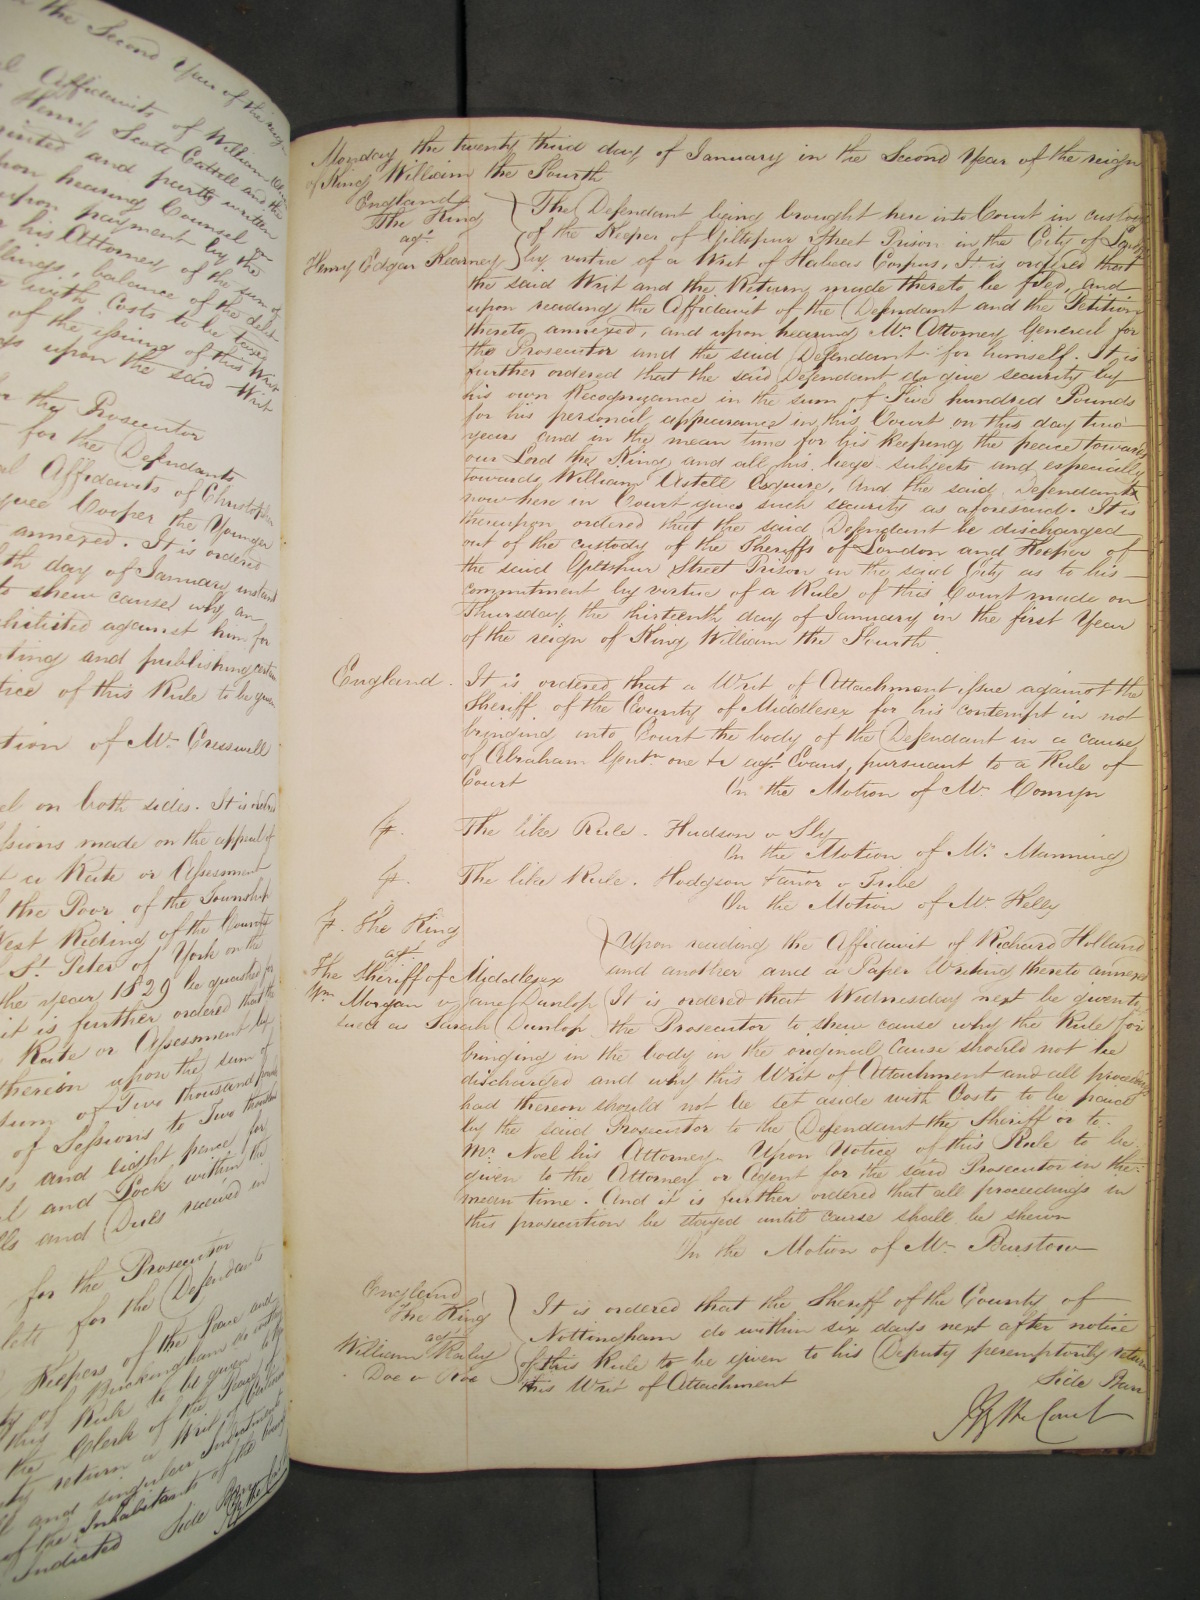 in the Second Year of the reign
Affidavits of William
Henry Scott Cattell and the
printed and partly written
upon hearing Counsel
upon payment by the
his Attorney of the sum of
shillings, balance of the debt
with Costs to be taxed
of the issuing of this Writ
upon the said Writ
the Prosecutor
for the Defendants
Affidavits of Christopher
Cooper the Younger
annexed. It is ordered
day of January instant
to shew cause why an
exhibited against him for
printing and publishing certain
notice of this Rule to be given
Motion of Mr. Cresswell
on both sides. It is ordered
Sessions made on the appeal of
a Rate or Assessment
the Poor of the Township
West Riding of the County
St. Peter of York on the
the year 1829 be quashed for
it is further ordered that the
Rate or Assessment by
therein upon the sum of
sum of Two thousand pounds
of Sessions to Two thousand
and eight pence for
and Lock within the
and Dues received in
for the Prosecutor
for the Defendants
Keepers of the Peace and
of Buckingham do within
this Rule to be given to
the Clerk of the Peace
return a Writ of Certiorari
and singular Indictments
of the Inhabitants of the
Indicted Side Bar
By the Court
Monday the twenty third day of January in the Second Year of the reign
of King William the Fourth
England
The King
agt.
Henry Edgar Kearney
The Defendant being brought here into Court in custody
of the Keeper of Giltspur Street Prison in the City of London
by virtue of a Writ of Habeas Corpus, It is ordered that
the said Writ and the Return made thereto be filed, and
upon reading the Affidavit of the Defendant and the Petition
thereto annexed, and upon hearing Mr. Attorney General for
the Prosecutor and the said Defendant for himself. It is
further ordered that the said Defendant do give security by
his own Recognizance in the sum of Five hundred Pounds
for his personal appearance in this Court on this day two
years and in the mean time for his keeping the peace towards
our Lord the King and all his liege subjects and especially
towards William Astell Esquire, And the said Defendant
now here in Court gives such security as aforesaid. It is
thereupon ordered that the said Defendant be discharged
out of the custody of the Sheriffs of London and Keeper of
the said Giltspur Street Prison in the said City as to his
commitment by virtue of a Rule of this Court made on
Thursday the thirteenth day of January in the first Year
of the reign of King William the Fourth.
England. It is ordered that a Writ of Attachment issue against the
Sheriff of the County of Middlesex for his contempt in not
bringing into Court the body of the Defendant in a cause
of Abraham Gentn. one &c agt. Evans, pursuant to a Rule of
Court On the Motion of Mr. Comyn
The like Rule. Hudson v Sly
On the Motion of Mr. Manning
The like Rule. Hodgson v Tribe
On the Motion of Mr. Kelly
The King
agt.
The Sheriff of Middlesex
Wm. Morgan v Jane Dunlop
sued as Sarah Dunlop
Upon reading the Affidavit of Richard Holland
and another and a Paper Writing thereto annexed
It is ordered that Wednesday next be given to
the Prosecutor to shew cause why the Rule for
bringing in the body in the original Cause should not be
discharged and why this Writ of Attachment and all proceedings
had thereon should not be set aside with Costs to be paid
by the said Prosecutor to the Defendant the Sheriff or to
Mr. Noel his Attorney. Upon Notice of this Rule to be
given to the Attorney or Agent for the said Prosecutor in the
mean time. And it is further ordered that all proceedings in
this prosecution be stayed until cause shall be shewn
On the Motion of Mr. Barstow
England
The King
agt
William Rieley
Doe v Roe
It is ordered that the Sheriff of the County of
Nottingham do within six days next after notice
of this Rule to be given to his Deputy peremptorily return
this Writ of Attachment
Side Bar
By the Court